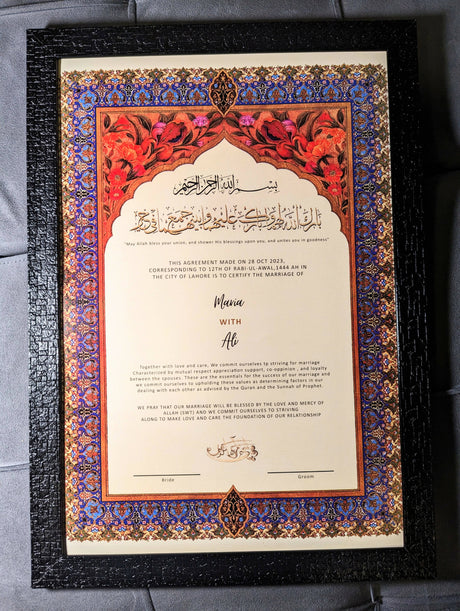 بسم الله الرحمن الرحيم
"May Allah bless your union, and shower His blessings upon you, and unites you in goodness"
THIS AGREEMENT MADE ON 28 OCT 2023,
CORRESPONDING TO 12TH OF RABI-UL-AWAL,1444 AH IN
THE CITY OF LAHORE IS TO CERTIFY THE MARRIAGE OF
Maria
WITH
Ali
Together with love and care, We commit ourselves tp striving for marriage
Characterized by mutual respect appreciation support, co-oppinion , and loyalty
between the spouses. These are the essentials for the success of our marriage and
we commit ourselves to upholding these values as determining factors in our
dealing with each other as advised by the Quran and the Sunnah of Prophet.
WE PRAY THAT OUR MARRIAGE WILL BE BLESSED BY THE LOVE AND MERCY OF
ALLAH (SWT) AND WE COMMIT OURSELVES TO STRIVING
ALONG TO MAKE LOVE AND CARE THE FOUNDATION OF OUR RELATIONSHIP
Bride
Groom